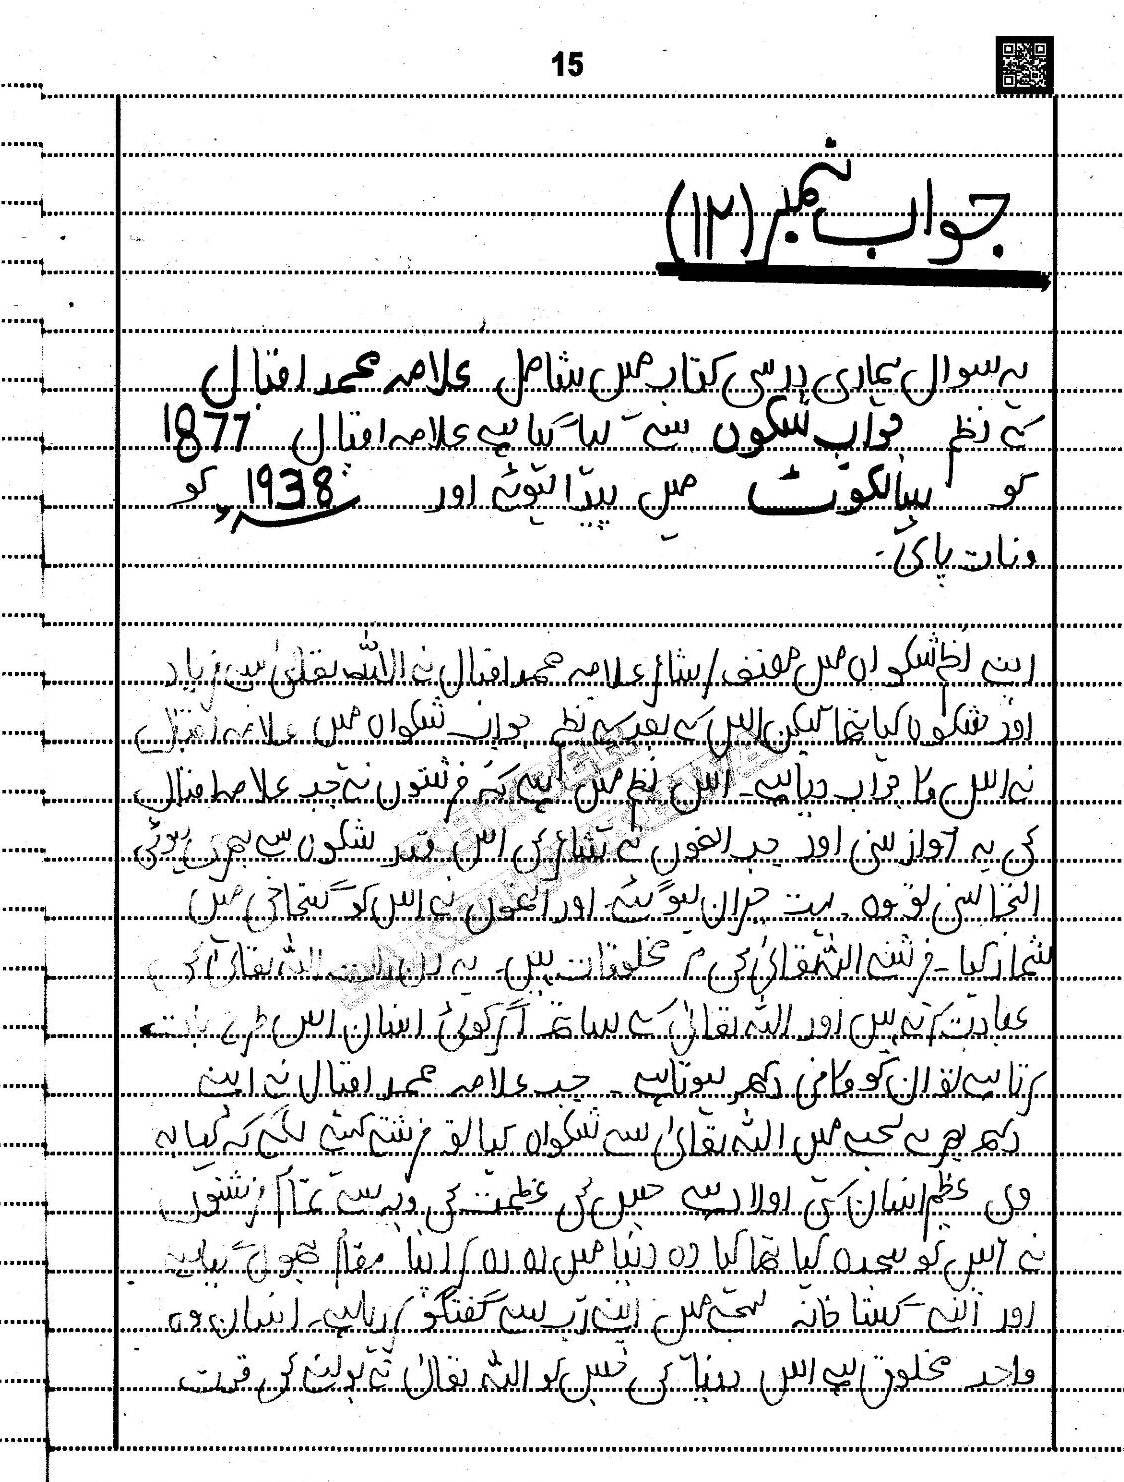 15
جواب نمبر (۱۲)
یہ سوال ہماری درسی کتاب میں شامل علامہ محمد اقبال
کے نظم جواب شکوں سے لیا گیا ہے علامہ اقبال 1877
کو سیالکوٹ میں پیدا ہوئے اور 1938ء کو
وفات پائی۔
اپنے نظم شکواہ میں مصنف / شائر علامہ محمد اقبال نے اللہ تعالیٰ سے فریاد
اور شکوہ کیا تھا لیکن اس کے بعد یہ نظم جواب شکواہ میں علامہ اقبال
نے اس کا جواب دیا ہے۔ اس نظم میں ہے کہ فرشتوں نے جب علامہ اقبال
کی یہ آواز سنی اور جب انھوں نے شائر کی اس قدر شکوں سے بھری ہوئی
التجا سنی تو وہ بہت حیران ہوگئے اور انھوں نے اس کو گستاخی میں
شمار کیا۔ فرشتے اللہ تعالیٰ کی مخلوقات ہیں۔ یہ دن رات اللہ تعالیٰ کی
عبادت کرتے ہیں اور اللہ تعالیٰ کے ساتھ اگر کوئی انسان اس طرح بات
کرتا ہے تو ان کو کافی دکھ ہوتا ہے۔ جب علامہ محمد اقبال نے اپنے
دکھ بھرے لہجے میں اللہ تعالیٰ سے شکواہ کیا تو فرشتے کہنے لگے کہ کیا یہ
وہی عظیم انسان کی اولاد ہے جس کی عظمت کی وجہ سے تمام فرشتوں
نے اس کو سجدہ کیا تھا کیا وہ دنیا میں رہ رہ کر اپنا مقام بھول گیا ہے
اور اتنے گستاخانہ لہجے میں اپنے رب سے گفتگو کر رہا ہے۔ انسان وہ
واحد مخلوق ہے اس دنیا کی جس کو اللہ تعالیٰ نے بولنے کی قدرت